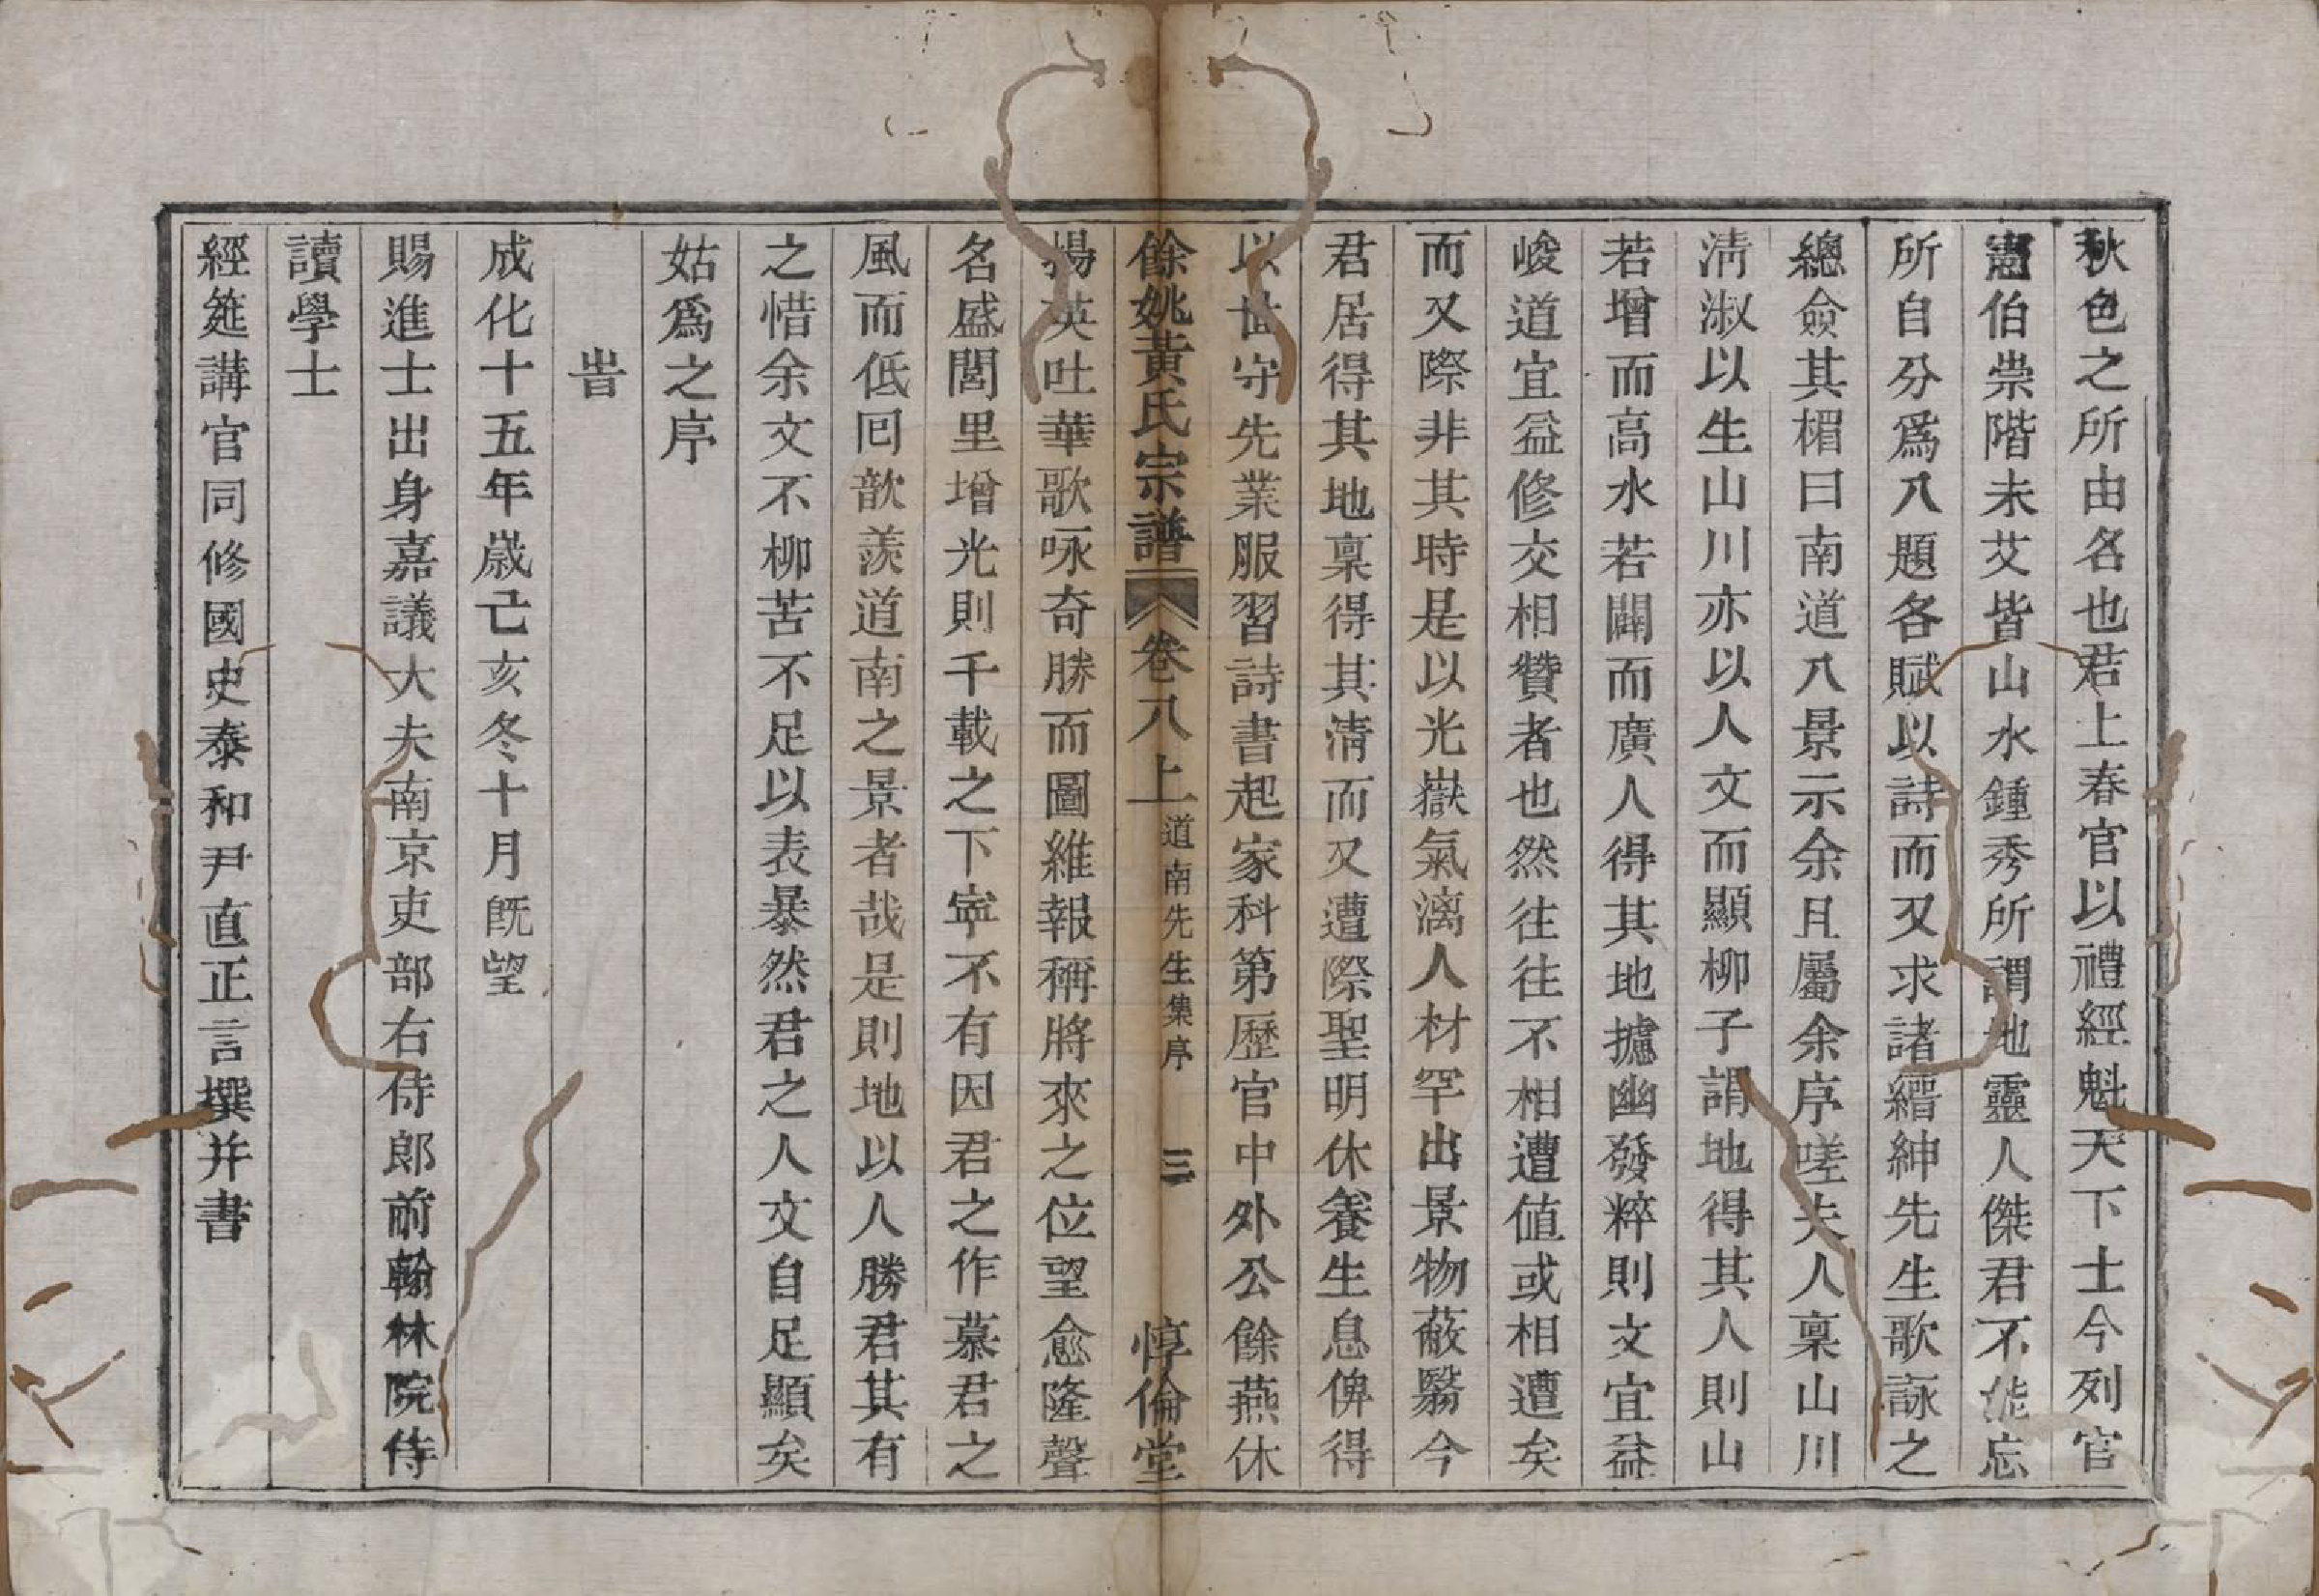 秋色之所由名也君上春官以禮經魁天下士今列官
憲伯崇階未艾皆山水鍾秀所謂地靈人傑君不能忘
所自分爲八題各賦以詩而又求諸縉紳先生歌詠之
總僉其楣曰南道八景示余且屬余序嗟夫人稟山川
淸淑以生山川亦以人文而顯柳子謂地得其人則山
若增而高水若闢而廣人得其地攄幽發粹則文宜益
峻道宜益修交相贊者也然往往不相遭値或相遭矣
而又際非其時是以光嶽氣漓人材罕出景物蔽翳今
君居得其地稟得其淸而又遭際聖明休養生息俾得
以世守先業服習詩書起家科第歷官中外公餘燕休
餘姚黃氏宗譜 卷八上 道南先生集序 三 惇倫堂
揚英吐華歌咏奇勝而圖維報稱將來之位望愈隆聲
名盛閭里增光則千載之下寧不有因君之作慕君之
風而低回歆羨道南之景者哉是則地以人勝君其有
之惜余文不柳苦不足以表暴然君之人文自足顯矣
姑爲之序
旹
成化十五年歲己亥冬十月旣望
賜進士出身嘉議大夫南京吏部右侍郎前翰林院侍
讀學士
經筵講官同修國史泰和尹直正言撰并書